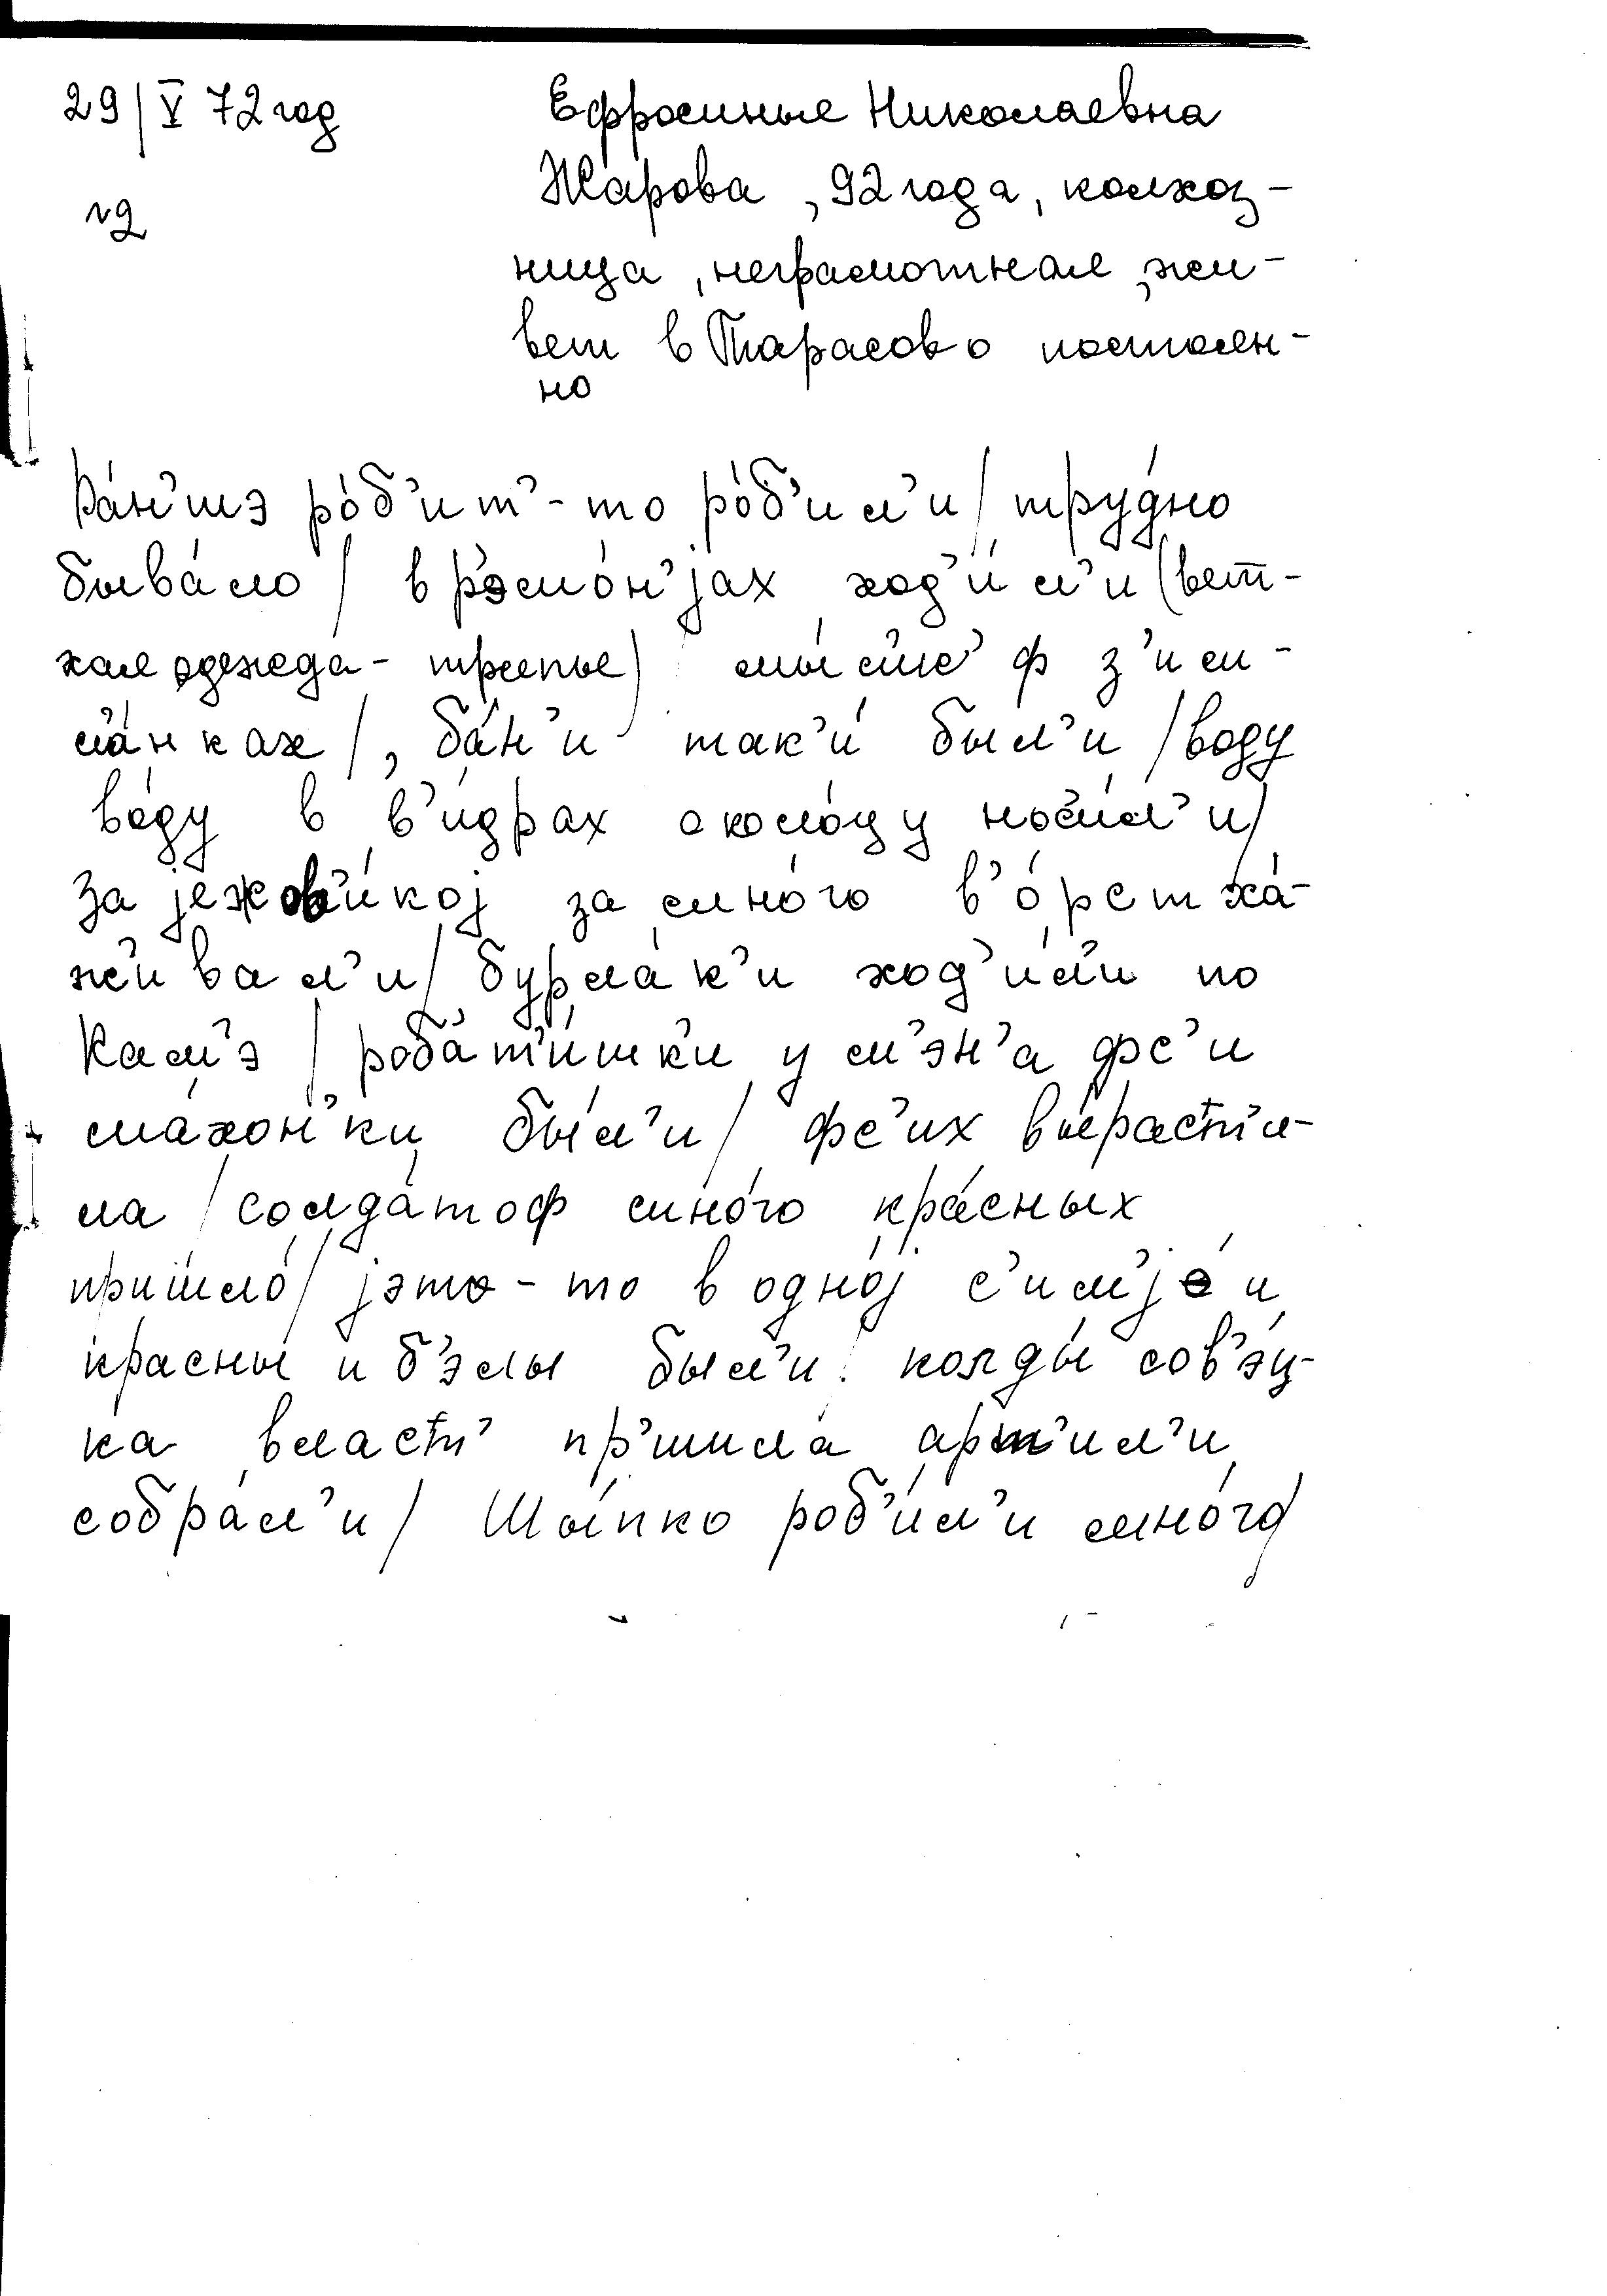 29/V 72 год
Ефросинья Николаевна
Жарова, 92 года, колхоз-
№2
ница, неграмотная, жи-
вет в Тарасово постоян-
но
Ра́н'шэ ро́б'ит'-то ро́б'ил'и/ тру́дно
быва́ло/ в р'эмо́н'jах ход'и́л'и (вет-
хая одежда - тряпье) мы́л'ис' ф з'им-
л'а́нках/, ба́н'и так'и́ был'и/ воду
во́ду в в'и́драх около́цу нос'и́л'и/
за jежов'и́кој за мно́го в'о́рст ха́-
жывал'и/ бурла́к'и ход'и́л'и по
Кам'э/ роб'ат'и́шк'и у м'эн'а фс'и
ма́хон'ки бы́л'и/ фс'их вы́раст'и-
ла/ солда́тоф мно́го кра́сных
пришло́/ jэто-то в одно́ј с'имjе́ и
красны и б'элы был'и/ колды́ сов'э́ц-
ка власт' пр'ишла́ арт'ил'и
собра́л'и/ Шы́пко роб'и́л'и мно́го/